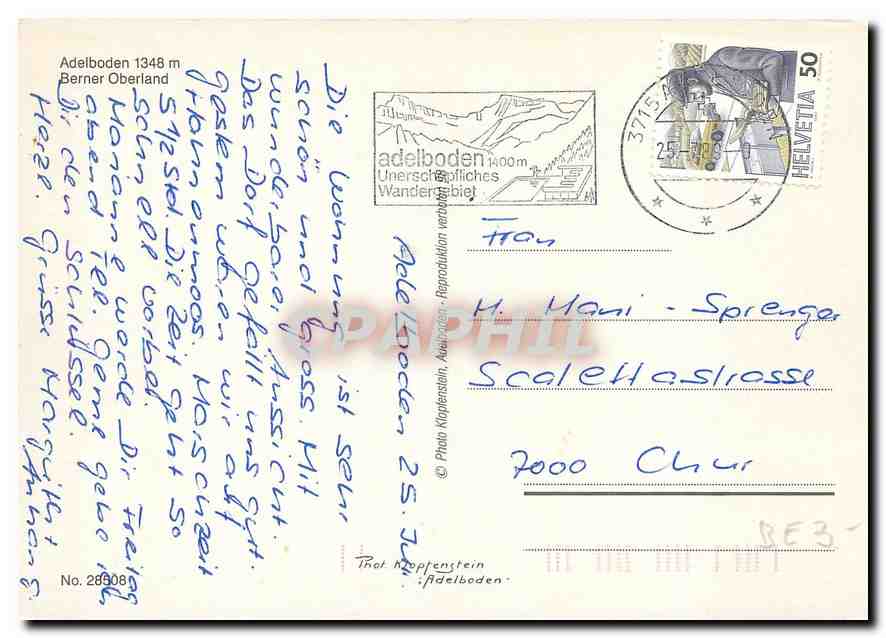 Adelboden 1348 m
Berner Oberland
Adelboden 25. Juli.
Die Wohnung ist sehr
schön und gross. Mit
wunderbarer Aussicht.
Das Dorf gefällt uns gut.
Gestern waren wir auf
Hahnenmoos. Marschzeit
5 1/2 Std. Die Zeit geht so
schnell vorbei.
Marianne werde Dir Freitag
abend Tel. Gerne gebe ich
Dir den Schlüssel.
Herzl. Grüsse Margrith +
No. 28508
© Photo Klopfenstein, Adelboden - Reproduktion verboten
Phot. Klopfenstein
Adelboden
adelboden 1400m
Unerschöpfliches
Wandergebiet
3715 A
25.-7.
HELVETIA 50
Frau
M. Mani - Sprenger
Scalettastrasse
7000 Chur
BE 3-
CPAPHIL